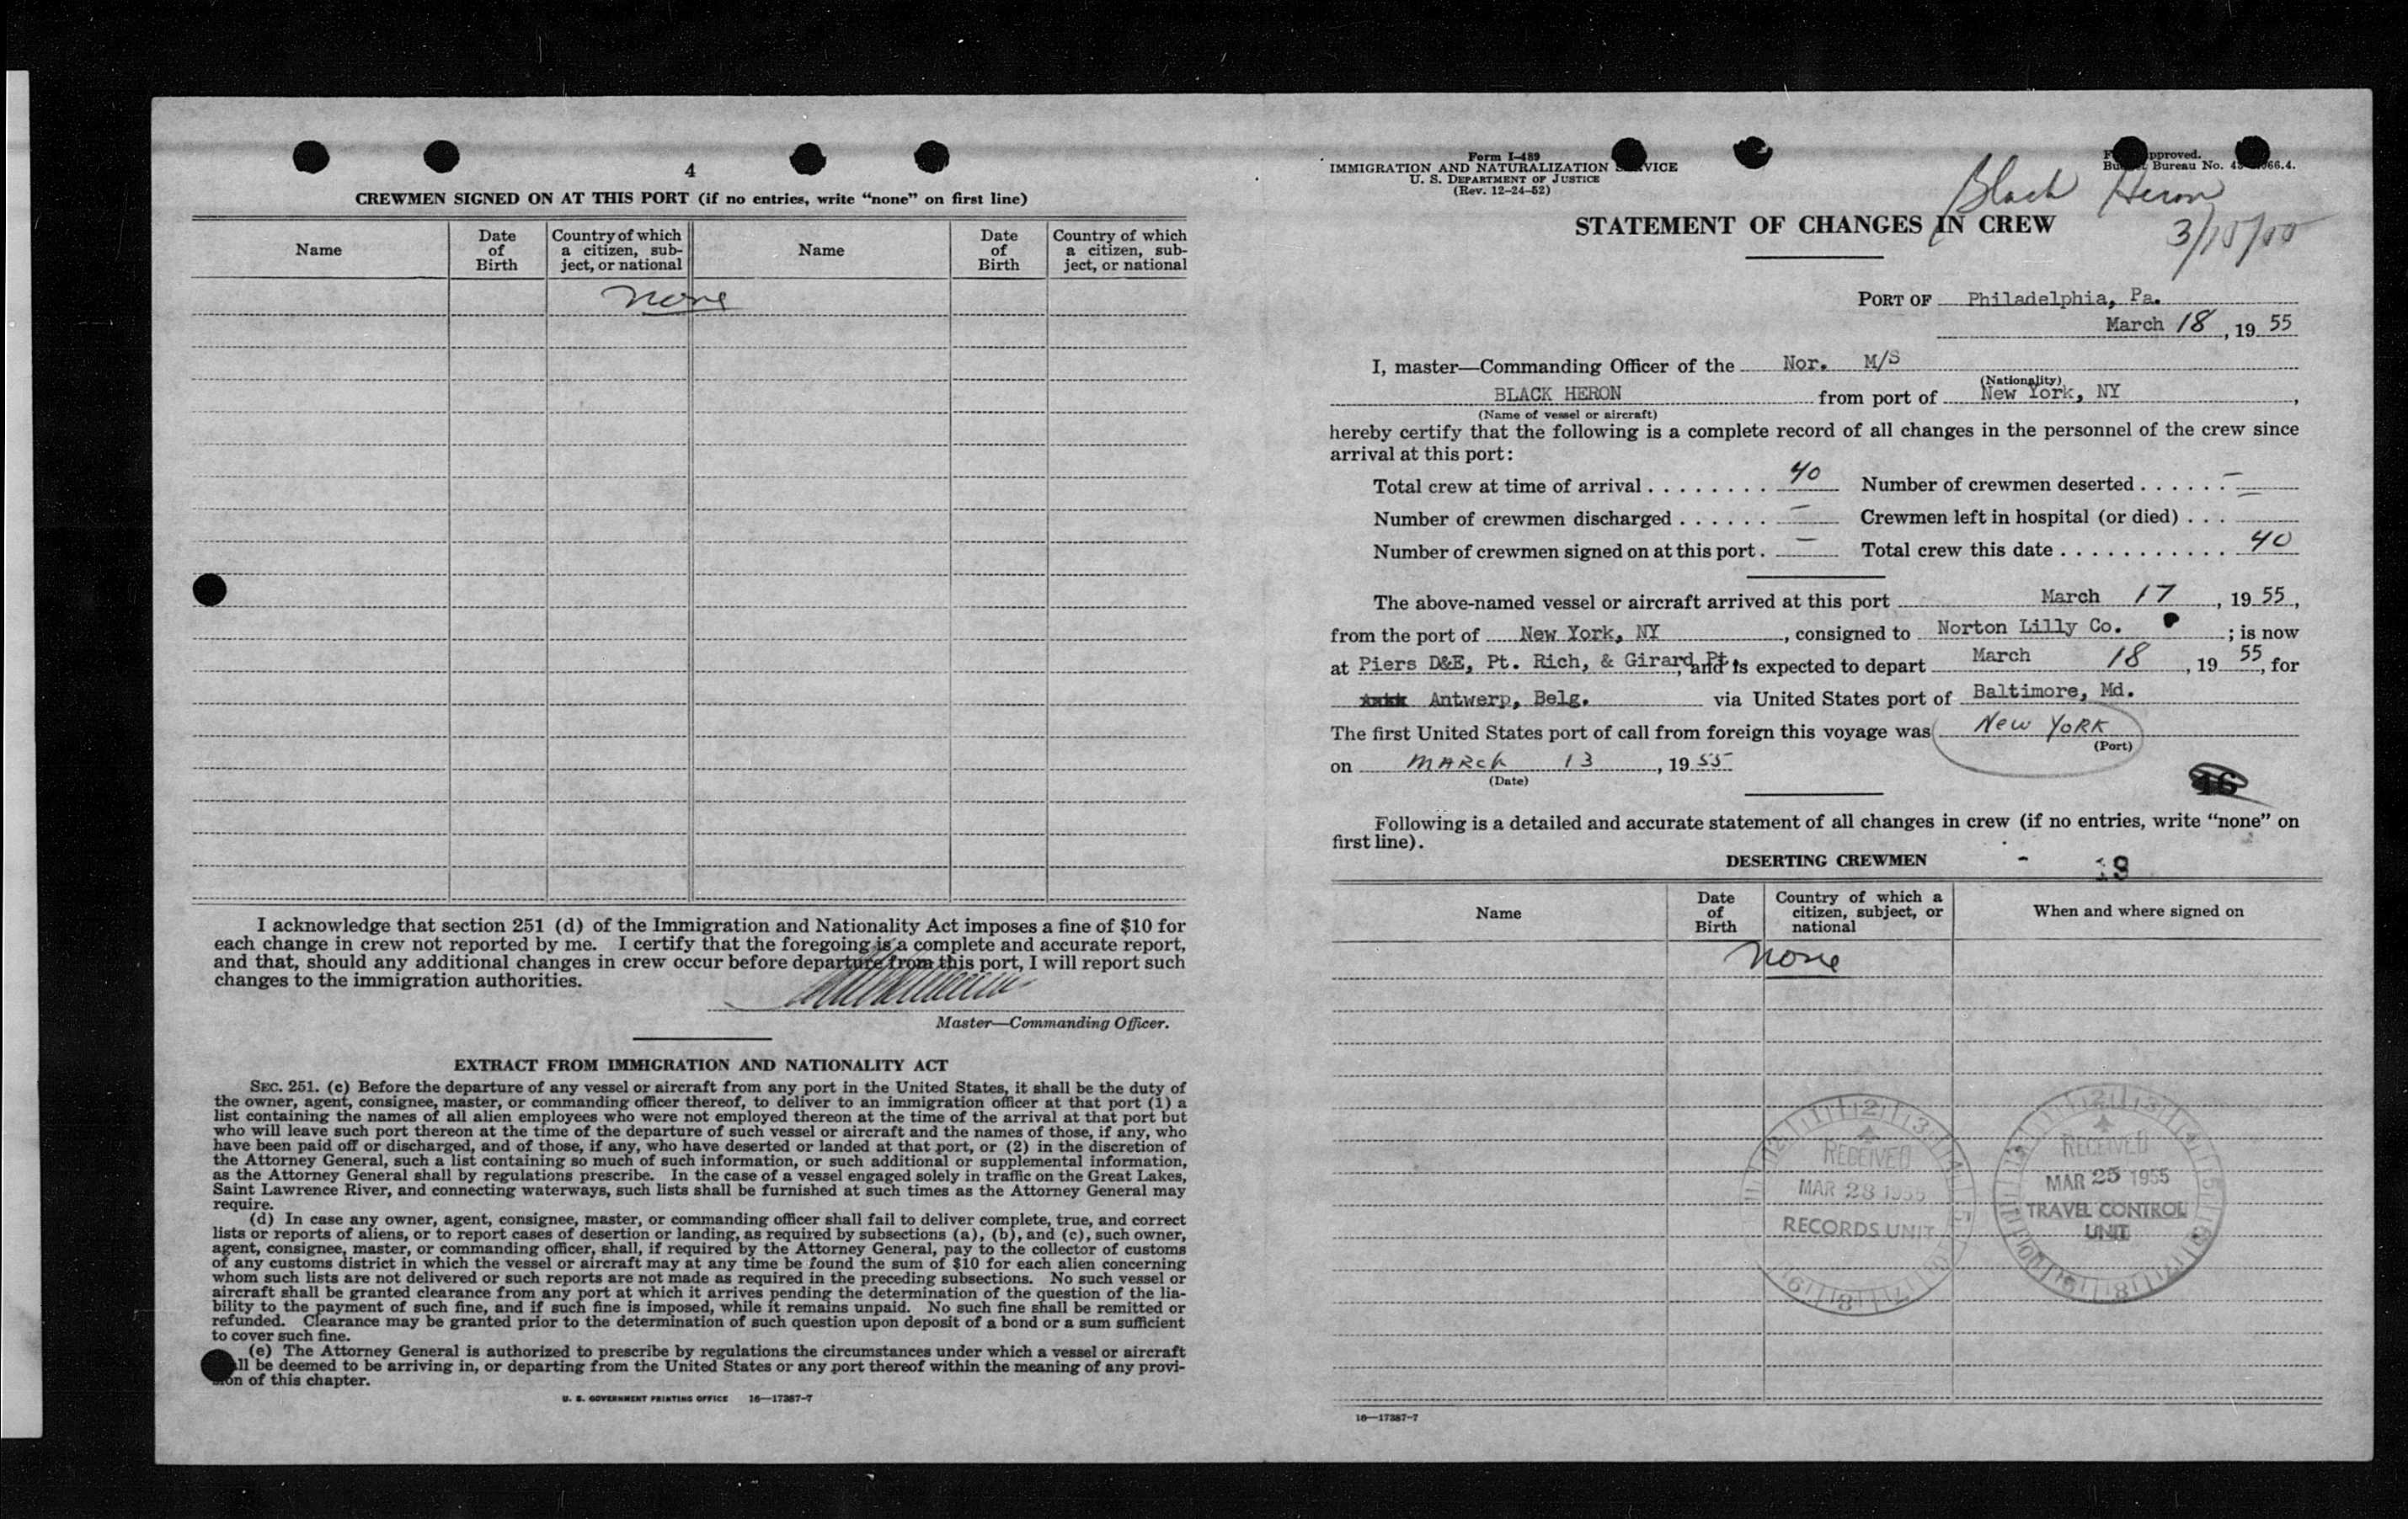 4
CREWMEN SIGNED ON AT THIS PORT (if no entries, write “none” on first line)
Name
Date of Birth
Country of which a citizen, sub-ject, or national
Name
Date of Birth
Country of which a citizen, sub-ject, or national
none
I acknowledge that section 251 (d) of the Immigration and Nationality Act imposes a fine of $10 for
each change in crew not reported by me. I certify that the foregoing is a complete and accurate report,
and that, should any additional changes in crew occur before departure from this port, I will report such
changes to the immigration authorities.
Master—Commanding Officer.
EXTRACT FROM IMMIGRATION AND NATIONALITY ACT
SEC. 251. (c) Before the departure of any vessel or aircraft from any port in the United States, it shall be the duty of
the owner, agent, consignee, master, or commanding officer thereof, to deliver to an immigration officer at that port (1) a
list containing the names of all alien employees who were not employed thereon at the time of the arrival at that port but
who will leave such port thereon at the time of the departure of such vessel or aircraft and the names of those, if any, who
have been paid off or discharged, and of those, if any, who have deserted or landed at that port, or (2) in the discretion of
the Attorney General, such a list containing so much of such information, or such additional or supplemental information,
as the Attorney General shall by regulations prescribe. In the case of a vessel engaged solely in traffic on the Great Lakes,
Saint Lawrence River, and connecting waterways, such lists shall be furnished at such times as the Attorney General may
require.
(d) In case any owner, agent, consignee, master, or commanding officer shall fail to deliver complete, true, and correct
lists or reports of aliens, or to report cases of desertion or landing, as required by subsections (a), (b), and (c), such owner,
agent, consignee, master, or commanding officer, shall, if required by the Attorney General, pay to the collector of customs
of any customs district in which the vessel or aircraft may at any time be found the sum of $10 for each alien concerning
whom such lists are not delivered or such reports are not made as required in the preceding subsections. No such vessel or
aircraft shall be granted clearance from any port at which it arrives pending the determination of the question of the lia-
bility to the payment of such fine, and if such fine is imposed, while it remains unpaid. No such fine shall be remitted or
refunded. Clearance may be granted prior to the determination of such question upon deposit of a bond or a sum sufficient
to cover such fine.
(e) The Attorney General is authorized to prescribe by regulations the circumstances under which a vessel or aircraft
all be deemed to be arriving in, or departing from the United States or any port thereof within the meaning of any provi-
sion of this chapter.
U. S. GOVERNMENT PRINTING OFFICE 16—17387-7
Form I-489
IMMIGRATION AND NATURALIZATION SERVICE
U. S. DEPARTMENT OF JUSTICE
(Rev. 12-24-52)
pproved.
Bureau No. 966.4.
Black Heron
STATEMENT OF CHANGES IN CREW
PORT OF Philadelphia, Pa.
March 18, 19 55
I, master—Commanding Officer of the Nor. M/S
(Nationality)
BLACK HERON from port of New York, NY,
(Name of vessel or aircraft)
hereby certify that the following is a complete record of all changes in the personnel of the crew since
arrival at this port:
Total crew at time of arrival . . . . . . . . 40 Number of crewmen deserted . . . . . . —
Number of crewmen discharged . . . . . . — Crewmen left in hospital (or died) . . . —
Number of crewmen signed on at this port . — Total crew this date . . . . . . . . . . . 40
The above-named vessel or aircraft arrived at this port March 17, 19 55,
from the port of New York, NY, consigned to Norton Lilly Co. ; is now
at Piers D&E, Pt. Rich, & Girard Pt., and is expected to depart March 18, 19 55, for
Antwerp, Belg. via United States port of Baltimore, Md.
The first United States port of call from foreign this voyage was New YORK
(Port)
on MARCH 13, 19 55
(Date)
16
Following is a detailed and accurate statement of all changes in crew (if no entries, write “none” on
first line).
DESERTING CREWMEN - 19
Name
Date of Birth
Country of which a citizen, subject, or national
When and where signed on
none
RECEIVED
MAR 28 1955
RECORDS UNIT
RECEIVED
MAR 25 1955
TRAVEL CONTROL
UNIT
16—17387-7